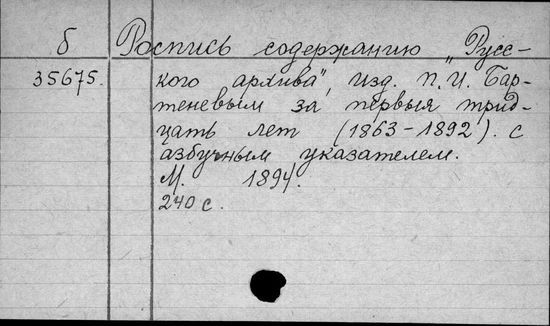 б Роспись содержанию „Русс-
35675. кого архива", изд. П. И. Бар-
теневым за первыя трид-
цать лет (1863-1892). с
азбучным указателем.
М. 1894.
240 с.